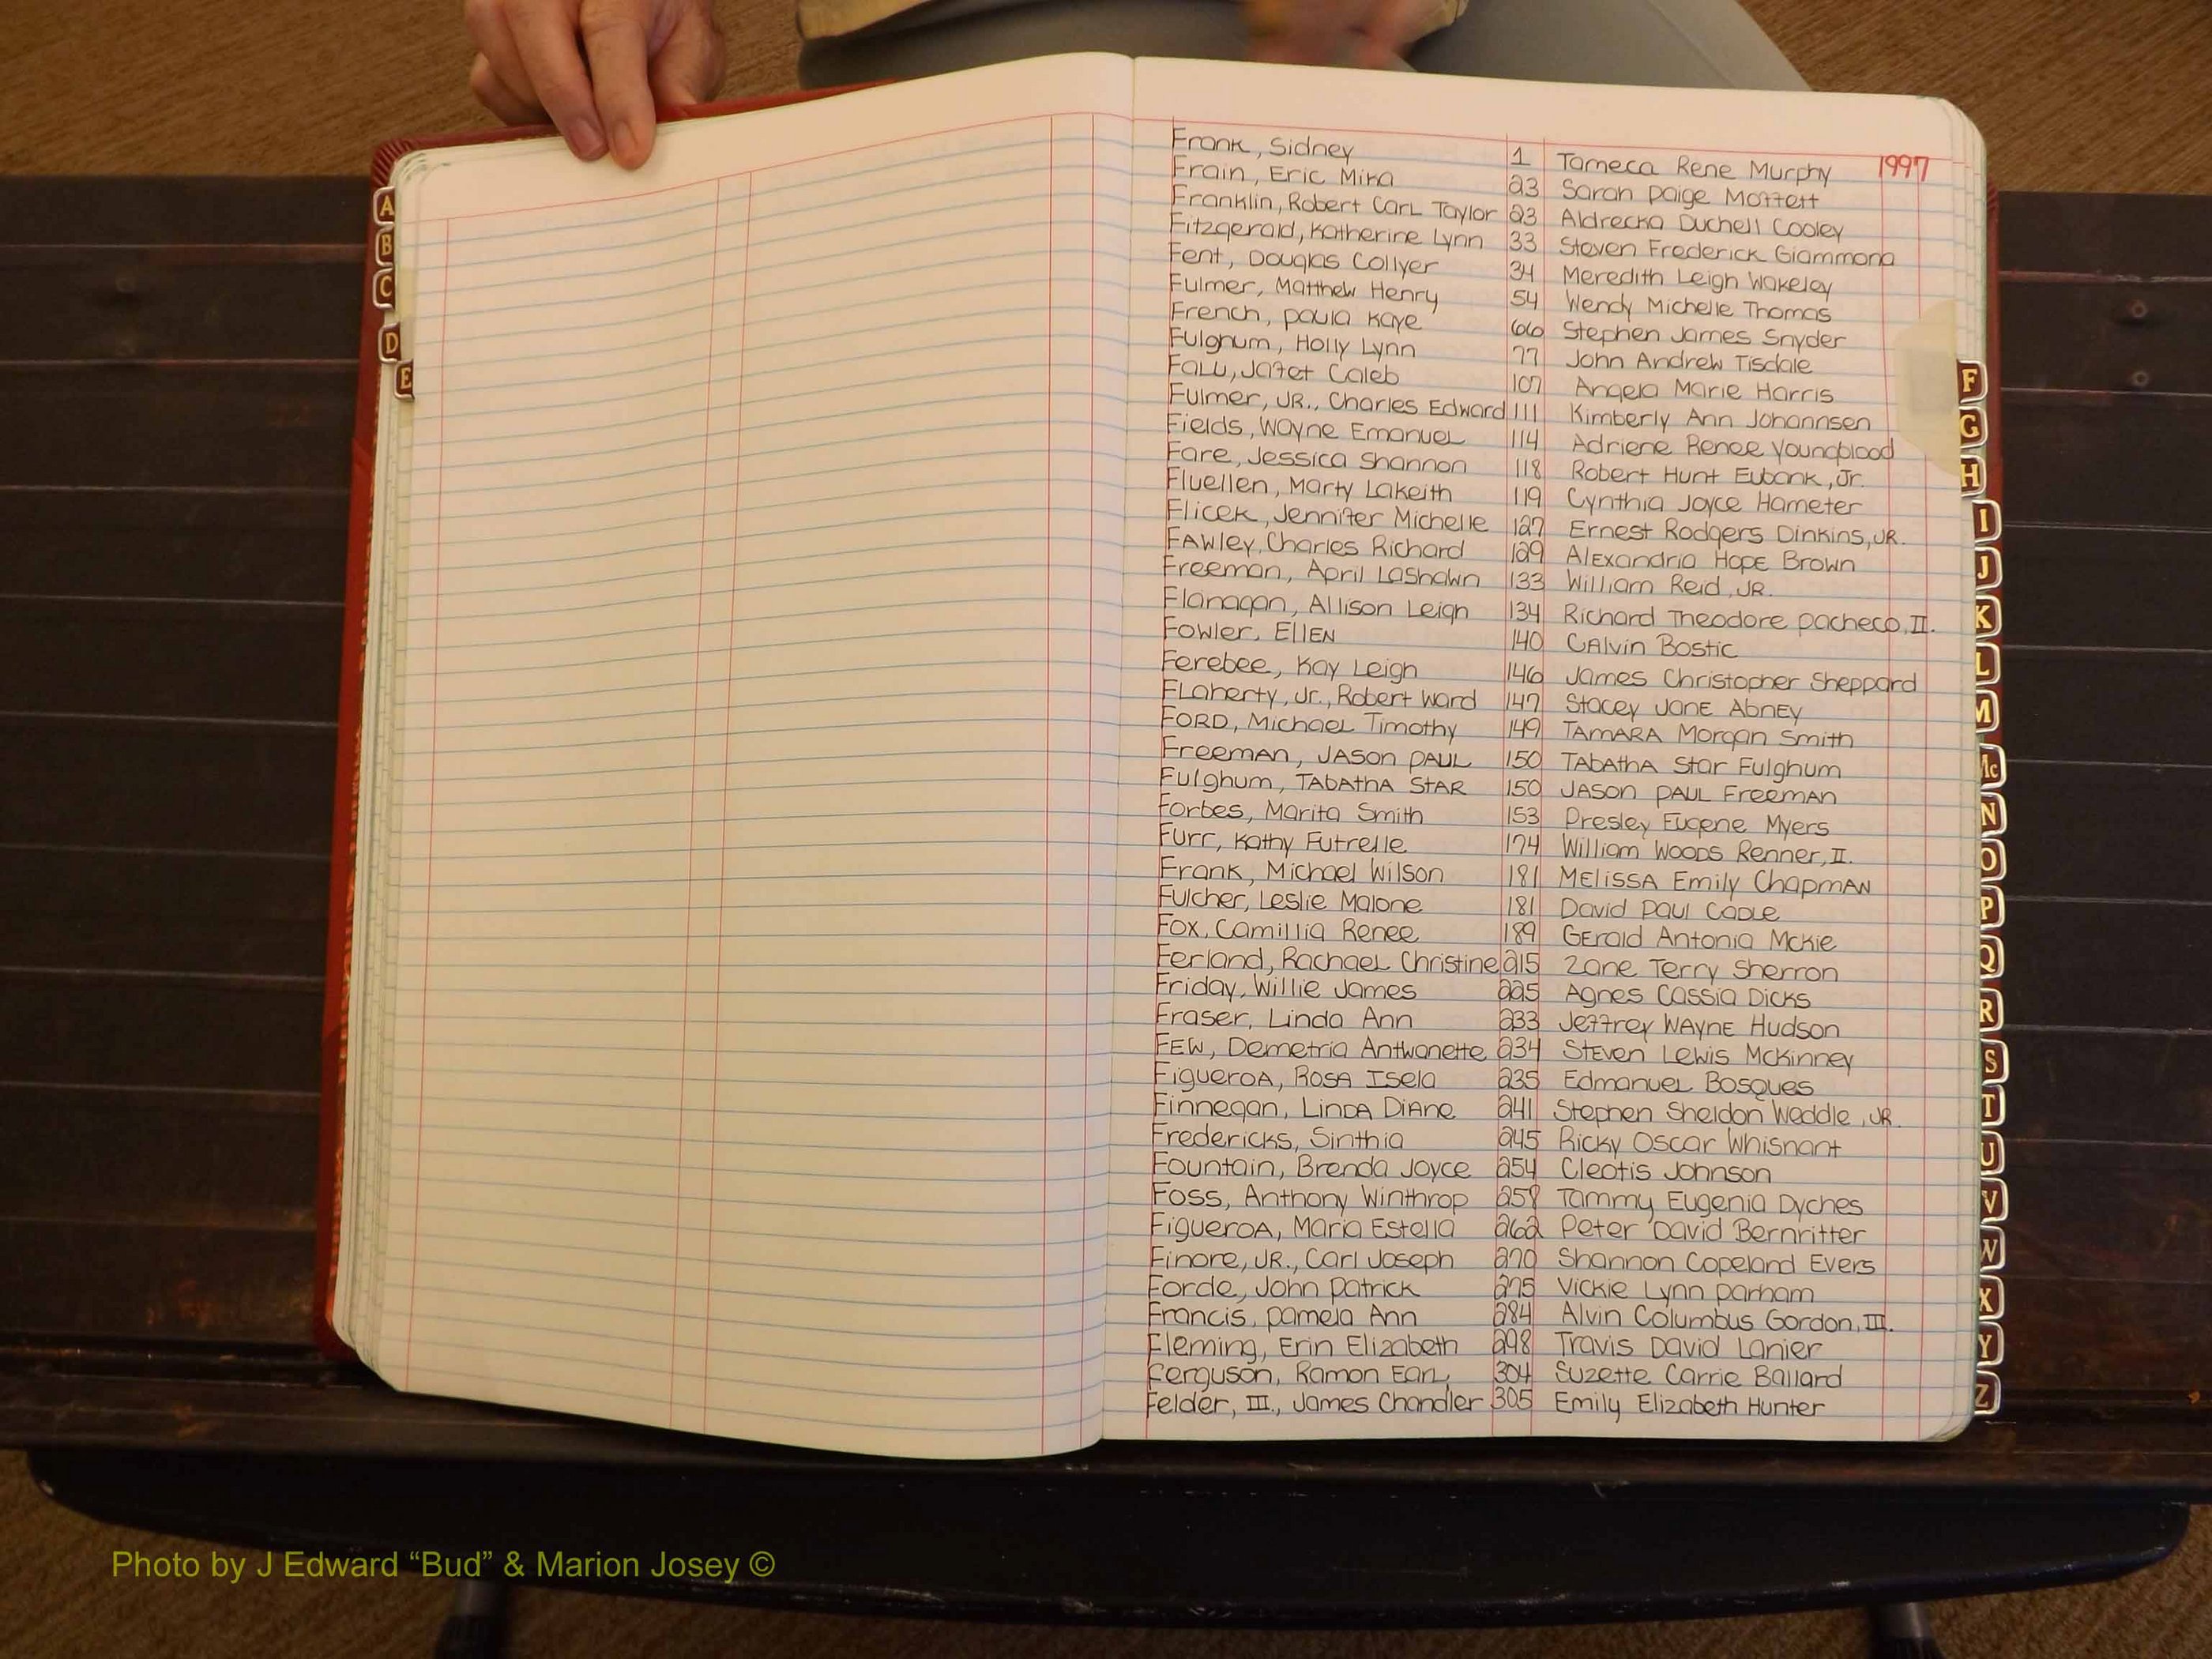 A
B
C
D
E
1997
Frank, Sidney 1 Tameca Rene Murphy
Frain, Eric Mika 23 Sarah Paige Moffett
Franklin, Robert Carl Taylor 23 Aldrecka Duchell Cooley
Fitzgerald, Katherine Lynn 33 Steven Frederick Giammona
Fent, Douglas Collyer 34 Meredith Leigh Wakeley
Fulmer, Matthew Henry 54 Wendy Michelle Thomas
French, Paula Kaye 66 Stephen James Snyder
Fulghum, Holly Lynn 77 John Andrew Tisdale
Falu, Jafet Caleb 107 Angela Marie Harris
Fulmer, JR., Charles Edward 111 Kimberly Ann Johannsen
Fields, Wayne Emanuel 114 Adriene Renee Youngblood
Fare, Jessica Shannon 118 Robert Hunt Eubank, Jr.
Fluellen, Marty Lakeith 119 Cynthia Joyce Hameter
Flicek, Jennifer Michelle 127 Ernest Rodgers Dinkins, JR.
Fawley, Charles Richard 129 Alexandria Hope Brown
Freeman, April LaShawn 133 William Reid, JR.
Flanagan, Allison Leigh 134 Richard Theodore Pacheco, II.
Fowler, Ellen 140 Calvin Bostic
Ferebee, Kay Leigh 146 James Christopher Sheppard
Flaherty, Jr., Robert Ward 147 Stacey Jane Abney
Ford, Michael Timothy 149 Tamara Morgan Smith
Freeman, Jason Paul 150 Tabatha Star Fulghum
Fulghum, Tabatha Star 150 Jason Paul Freeman
Forbes, Marita Smith 153 Presley Eugene Myers
Furr, Kathy Futrelle 174 William Woods Renner, II.
Frank, Michael Wilson 181 Melissa Emily Chapman
Fulcher, Leslie Malone 181 David Paul Cable
Fox, Camillia Renee 189 Gerald Antonia McKie
Ferland, Rachael Christine 215 Zane Terry Sherron
Friday, Willie James 225 Agnes Cassia Dicks
Fraser, Linda Ann 233 Jeffrey Wayne Hudson
Few, Demetria Antwonette 234 Steven Lewis McKinney
Figueroa, Rosa Isela 235 Edmanuel Bosques
Finnegan, Linda Diane 241 Stephen Sheldon Weddle, JR.
Fredericks, Sinthia 245 Ricky Oscar Whisnant
Fountain, Brenda Joyce 254 Cleotis Johnson
Foss, Anthony Winthrop 258 Tammy Eugenia Dyches
Figueroa, Maria Estella 262 Peter David Bernritter
Finore, JR., Carl Joseph 270 Shannon Copeland Evers
Forde, John Patrick 275 Vickie Lynn Parham
Francis, Pamela Ann 284 Alvin Columbus Gordon, III.
Fleming, Erin Elizabeth 298 Travis David Lanier
Ferguson, Ramon Earl 304 Suzette Carrie Ballard
Felder, III., James Chandler 305 Emily Elizabeth Hunter
F
G
H
I
J
K
L
M
Mc
N
O
P
Q
R
S
T
U
V
W
X
Y
Z
Photo by J Edward “Bud” & Marion Josey ©